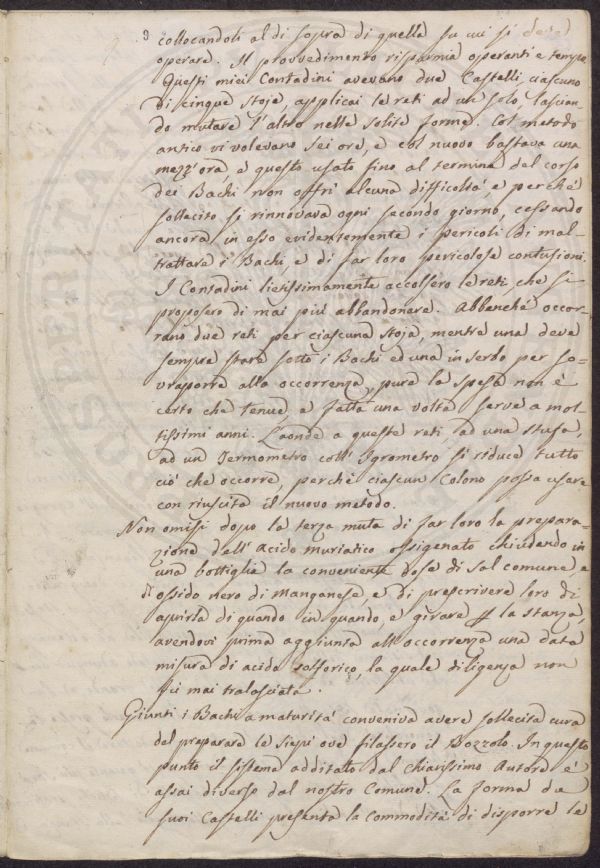 collocandoli al di sopra di quelle su cui si deve
operare. Il provvedimento risparmia operanti e tempo
Questi miei Contadini avevano due Castelli, ciascuno
di cinque stoje, applicai le reti ad un solo, lascian-
do mutare l'altro nelle solite forme. Col metodo
antico vi volevano sei ore, e col nuovo bastava una
mezz'ora, e questo usato fino al termine del corso
dei Bachi non offrì alcuna difficoltà, e perché
sollecito si rinnovava ogni secondo giorno, cessando
ancora in esso evidentemente i pericoli di mal-
trattare i Bachi, e di far loro pericolose contusioni.
I Contadini lietissimamente accolsero le reti che si
proposero di mai più abbandonare. Abbenché occor-
rano due reti per ciascuna stoja, mentre una deve
sempre stare sotto i Bachi ed una in serbo per so-
vrapporre alla occorrenza, pure la spesa non è
certo che tenue, e fatta una volta serve a mol-
tissimi anni. Laonde a queste reti, ad una stufa,
ad un Termometro coll'Igrometro si riduce tutto
ciò che occorre, perché ciascun Colono possa usare
con riuscita il nuovo metodo.
Non omisi dopo la terza muta di far loro la prepara-
zione dell'Acido muriatico ossigenato chiudendo in
una bottiglia la conveniente dose di Sal comune e
di ossido nero di Manganese, e di prescrivere loro di
aprirla di quando in quando, e girare p la stanza,
avendovi prima aggiunta all'occorrenza una data
misura di acido solforico, la quale diligenza non
fu mai tralasciata.
Giunti i Bachi a maturità conveniva avere sollecita cura
del preparare le siepi ove filassero il Bozzolo. In questo
punto il sistema additato dal Chiarissimo Autore è
assai diverso dal nostro Comune. La forma de
suoi Castelli presenta la commodità di disporre le